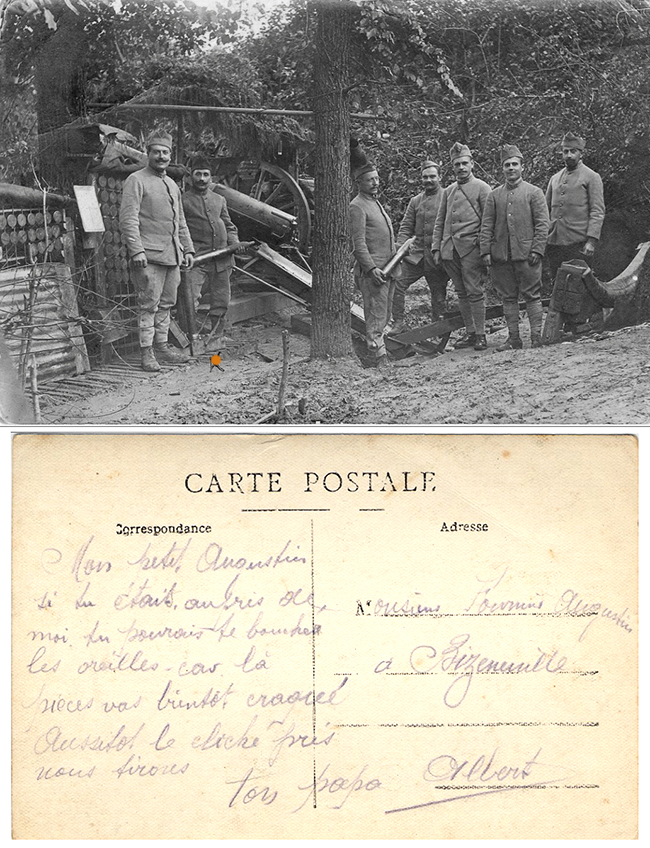 CARTE POSTALE
Correspondance
Adresse
Mon petit Augustin
si tu était aupris de
moi tu pourais te boucher
les oreilles car la
pieces vas bientot craquer
Aussitot le cliché pris
nous tirons
ton papa
Albert
Monsieur Augustin
à Bizeneuille